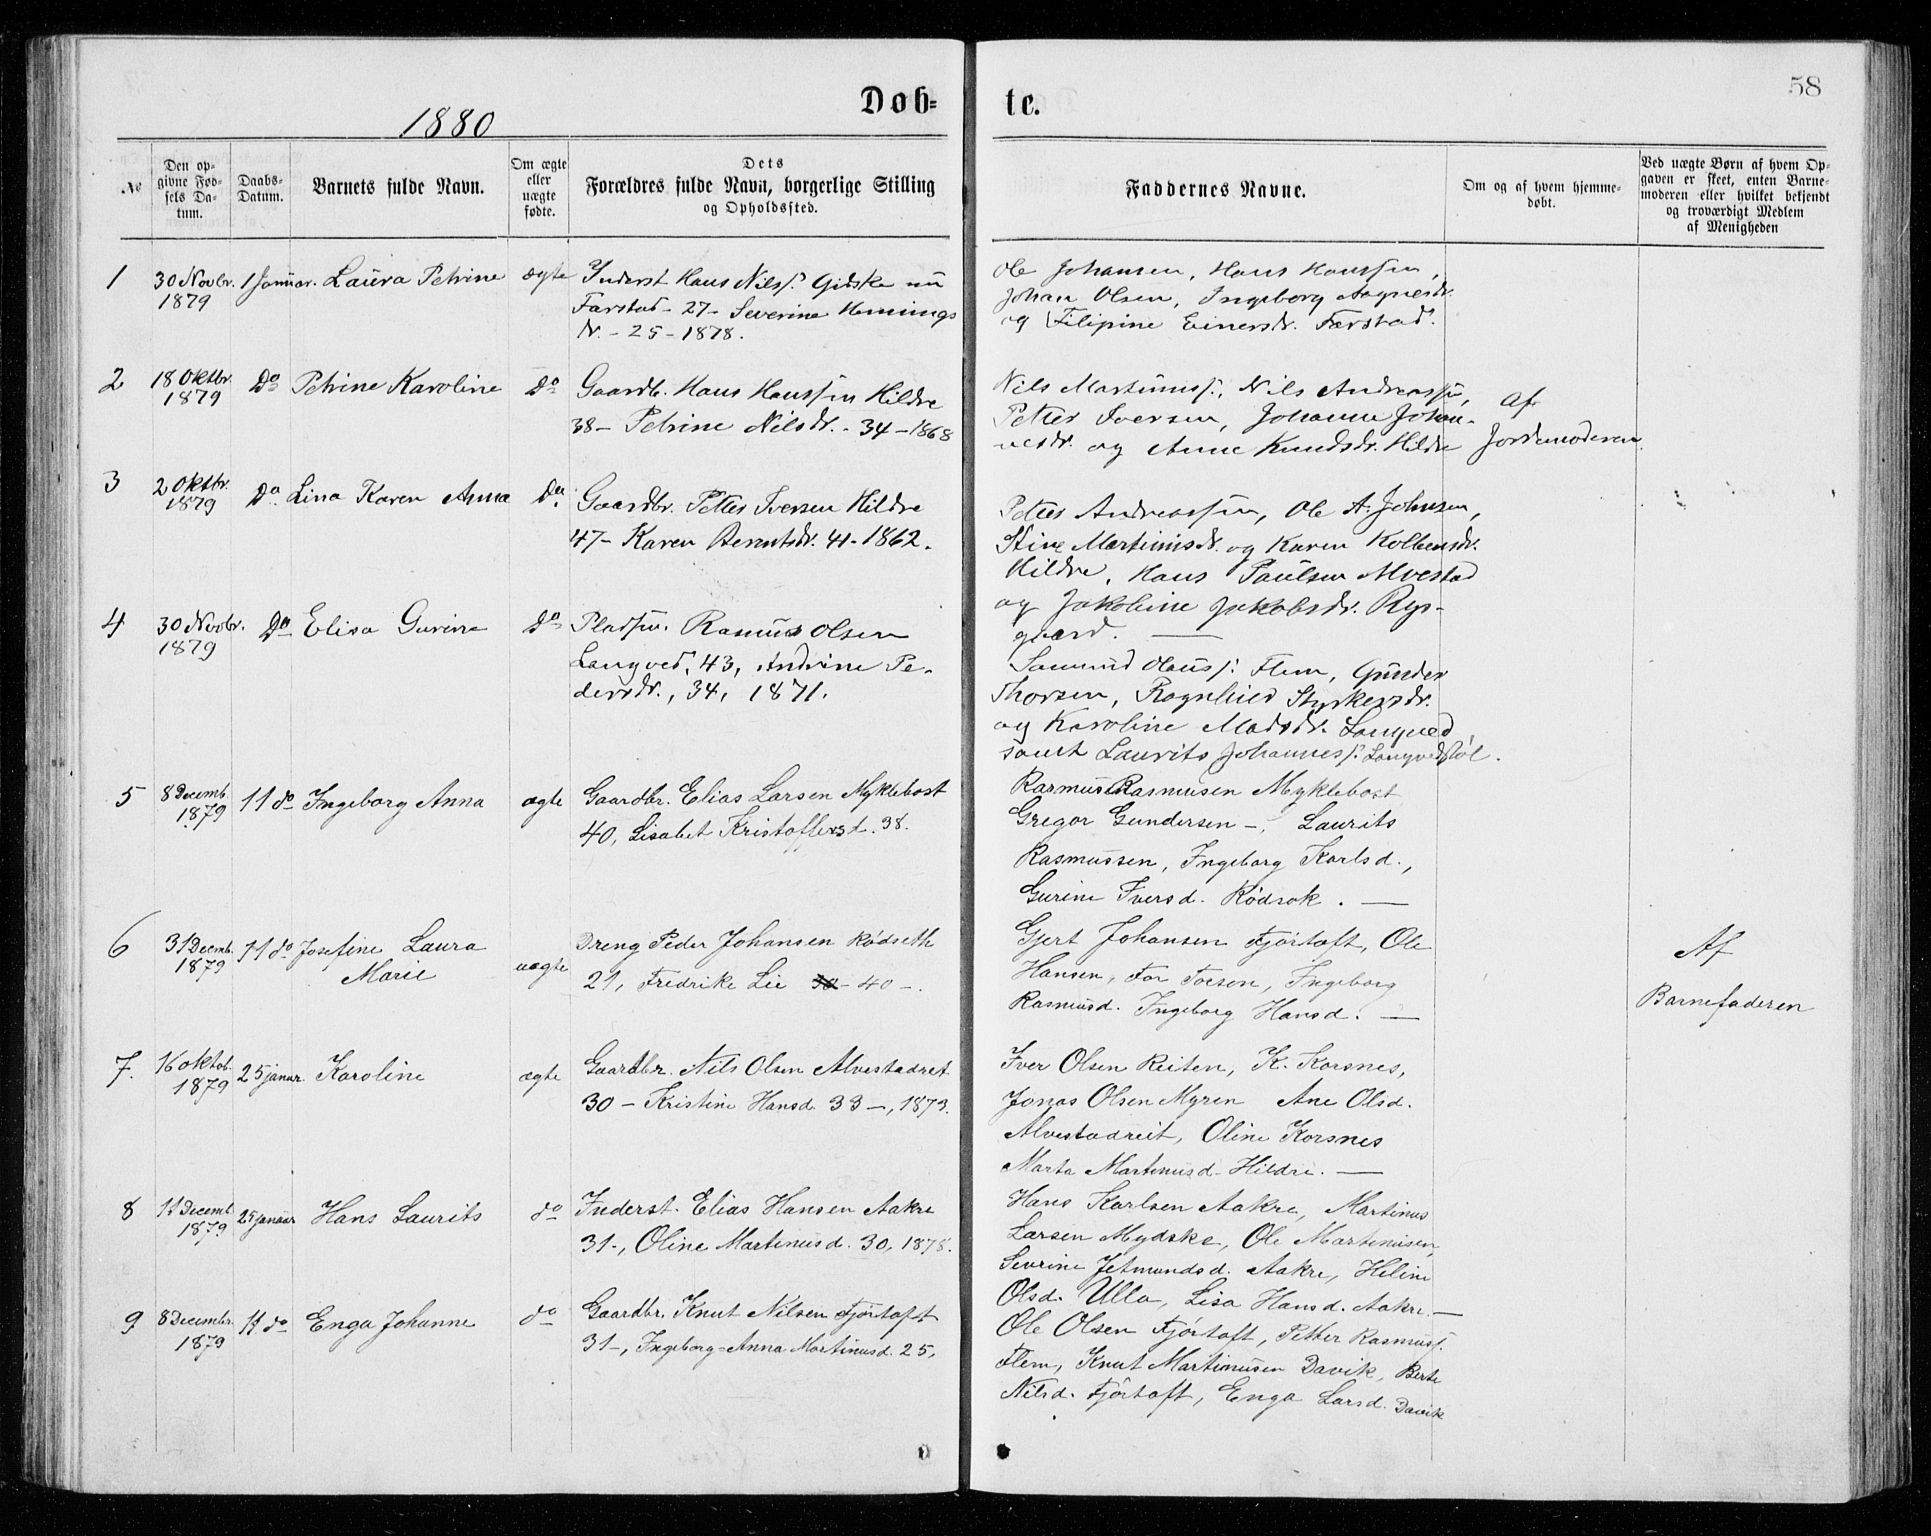 58
Døb-
te.
1880
No
Den op-
givne Fød-
sels Da-
tum.
Daabs-
Datum.
Barnets fulde Navn.
Om ægte
eller
uægte
fødte.
Dets
Forældres fulde Navn, borgerlige Stilling
og Opholdssted.
Faddernes Navne.
Om og af hvem hjemme-
døbt.
Ved uægte Børn af hvem Op-
gaven er skeet, enten Barne-
moderen eller hvilket bekjendt
og troværdigt Medlem
af Menigheden
1
30 Novbr.
1879
1 Januar.
Laura Petrine
ægte
Inderst Hans Nilss. Gidske nu
Farstad - 27 - Severine Hennings
dr. - 25 - 1878.
Ole Johansen, Hans Hanssen,
Johan Olsen, Ingeborg Aagnesdr.
og Filipine Einersdr. Farstad.
2
18 Oktbr.
1879
Do
Petrine Karoline
Do
Gaardb. Hans Hanssen Hildre
38 - Petrine Nilsdr. - 34 - 1868
Nils Martinuss., Nils Andreassen,
Petter Iversen, Johanne Johan-
nesdr. og Anne Knudsdr. Hildre
Af
Jordemoderen.
3
2 Oktbr.
1879
Do
Lina Karen Anna
Do.
Gaardbr. Petter Iversen Hildre
47 - Karen Berentsdr. 41 - 1862.
Petter Andreassen, Ole A. Johnsen,
Stine Martinusdr. og Karen Kolbensdr.
Hildre, Hans Paulsen Alvestad
og Jakobine Jakobsdr. Rys-
gaard. —
4
30 Novbr.
1879
Do
Elisa Gurine
Do
Pladsm. Rasmus Olsen
Langved, 43, Andrine Pe-
dersdr., 34, 1871.
Samund Hanss. Flem, Gunder
Thorsen, Ragnhild Styrkersdr.
og Karoline Madsdr. Langved
samt Laurits Johanness. Langvedstøl.
5
8 Decemb.
1879
11 do
Ingeborg Anna
ægte
Gaardbr. Elias Larsen Myklebost
40, Lisabet Kristoffersd. 38.
Rasmus Rasmusen Myklebost
Gregor Gundersen -, Laurits
Rasmussen, Ingeborg Karlsd.,
Gurine Iversd. Rödsok. —
6
31 Decemb.
1879
11 do
Josefine Laura
Marie
uægte
Dreng Peder Johansen Rödseth
21, Fredrike Lie 30 - 40 -.
Gjert Johansen Fjörtoft, Ole
Hansen, Tor Torson, Ingeborg
Rasmusd. Ingeborg Hansd. —
Af
Barnefaderen
7.
16 oktob.
1879
25 januar.
Karoline
ægte
Gaardbr. Nils Olsen Alvestadreit
30 - Kristine Hansd. 33 -, 1873.
Iver Olsen Reiten, K. Korsnes,
Jonas Olsen Myren Ane Olsd.
Alvestadreit, Oline Korsnes
Marta Martinusd. Hildre. —
8
11 Decemb.
1879
25 januar
Hans Laurits
do
Inderst. Elias Hansen Aakre
31 -, Oline Martinusd. 30, 1878.
Hans Karlsen Aakre, Martinus
Larsen Mydske, Ole Martinusen,
Sevrine Jetmundsd. Aakre, Heline
Olsd. Ulla, Lisa Hansd. Aakre. —
9
8 Decembr.
1879
11 do
Enga Johanne
do
Gaardbr. Knut Nilsen Fjörtoft
31 -, Ingeborg-Anna Martinusd. 25,
Ole Olsen Fjörtoft, Petter Rasmuss.
Flem, Knut Martinusen Davik, Berte
Nilsd. Fjörtoft, Enga Larsd. Davik